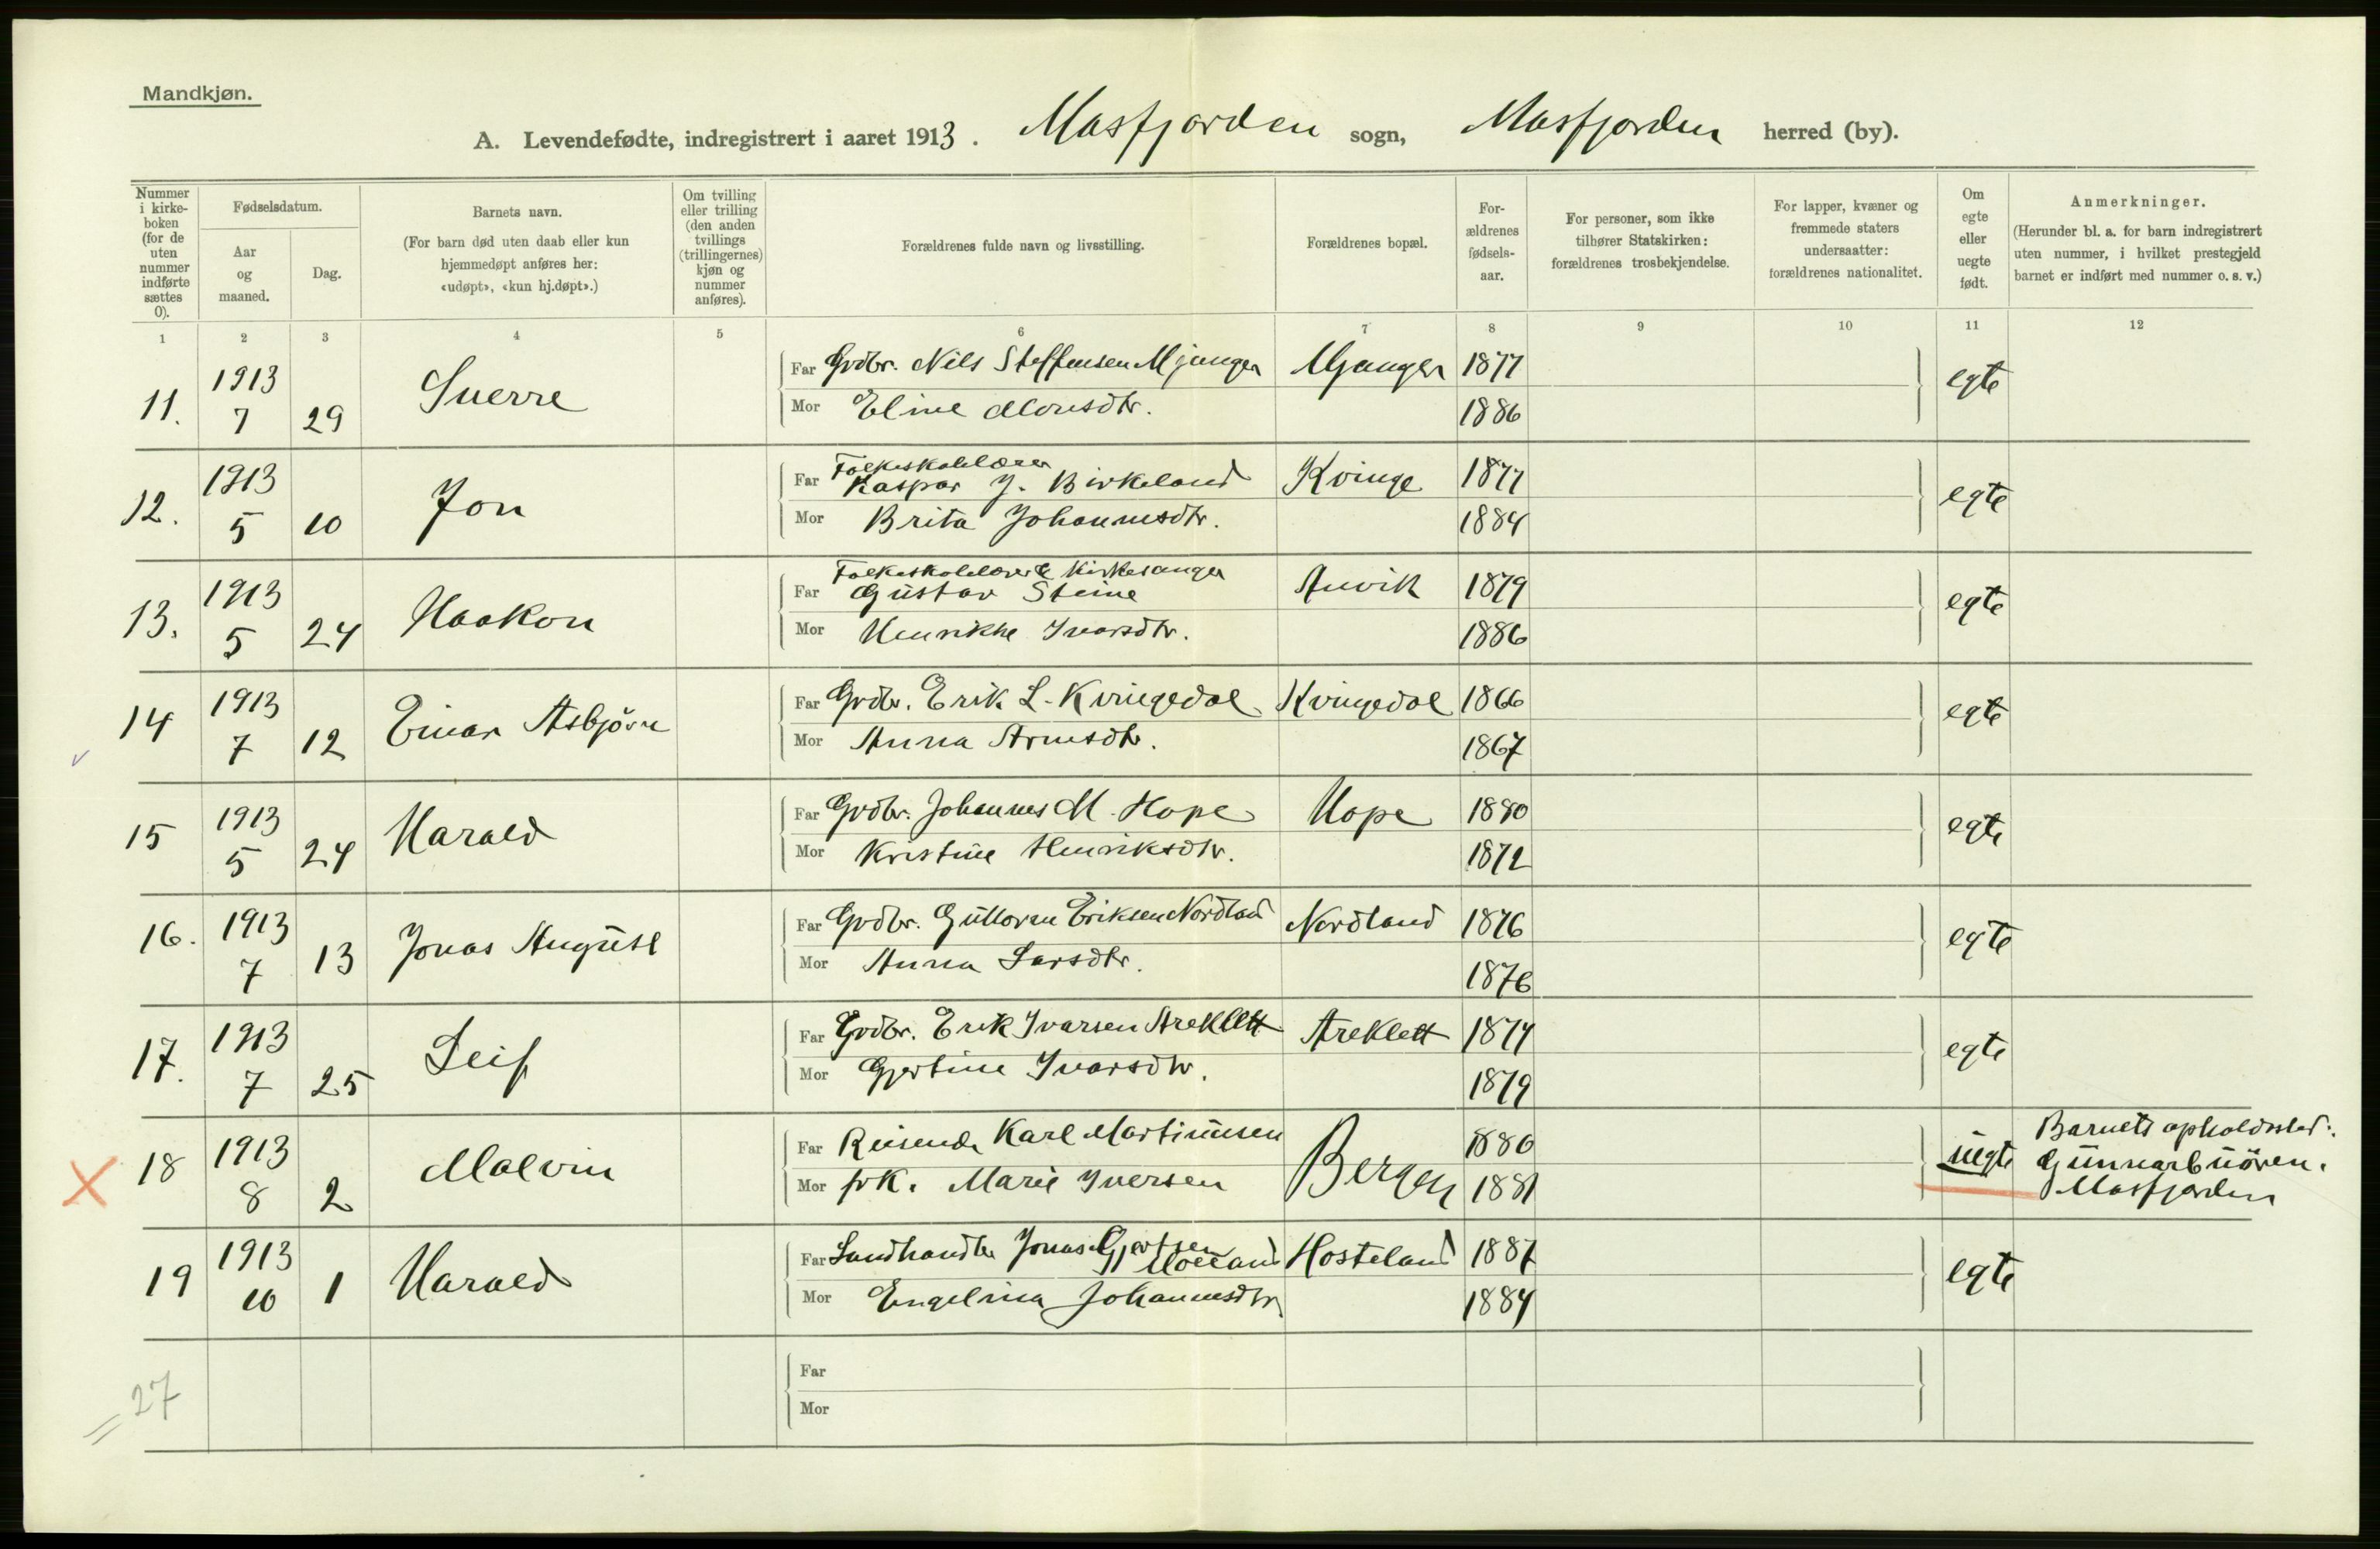 Mandkjøn.
A. Levendefødte, indregistrert i aaret 1913. Masfjorden sogn, Masfjorden herred (by).
Nummer i kirke-boken (for de uten nummer indførte sættes 0).
Fødselsdatum.
Aar og maaned.
Dag.
Barnets navn.
(For barn død uten daab eller kun hjemmedøpt anføres her: «udøpt», «kun hj.døpt».)
Om tvilling eller trilling (den anden tvillings (trillingernes) kjøn og nummer anføres).
Forældrenes fulde navn og livsstilling.
Forældrenes bopæl.
For-ældrenes fødsels-aar.
For personer, som ikke tilhører Statskirken: forældrenes trosbekjendelse.
For lapper, kvæner og fremmede staters undersaatter: forældrenes nationalitet.
Om egte eller uegte født.
Anmerkninger.
(Herunder bl. a. for barn indregistrert uten nummer, i hvilket prestegjeld barnet er indført med nummer o. s. v.)
1 2 3 4 5 6 7 8 9 10 11 12
11. 1913 7 29 Sverre Far Grdbr. Nils Steffensen Mjanger Mjanger 1877 egte
Mor Eline Monsdtr. 1886
12. 1913 5 10 Jon Far Folkeskolelærer Kaspar J. Birkeland Kvinge 1877 egte
Mor Brita Johannesdtr. 1884
13. 1913 5 24 Haakon Far Folkeskolelærer & Kirkesanger Gustav Steine Andvik 1879 egte
Mor Henrikke Ivarsdtr. 1886
14 1913 7 12 Einar Asbjörn Far Grdbr. Erik L. Kvingedal Kvingedal 1866 egte
Mor Anna Arnesdtr. 1867
15 1913 5 24 Harald Far Grdbr. Johannes M. Hope Hope 1880 egte
Mor Kristine Henriksdtr. 1872
16. 1913 7 13 Jonas August Far Grdbr. Guttorm Eriksen Nordland Nordland 1876 egte
Mor Anna Larsdtr. 1876
17. 1913 7 25 Leif Far Grdbr. Erik Ivarsen Areklett Areklett 1874 egte
Mor Gjertine Ivarsdtr. 1879
18 1913 8 2 Malvin Far Reisende Karl Martinusen Bergen 1880 uegte Barnets opholdssted:
Mor frk. Marie Iversen 1881 Gunnarbuören.
Masfjorden
19 1913 10 1 Harald Far Landhandler Jonas Gjertsen Molland Hosteland 1887 egte
Mor Engelina Johannesdtr 1884
Far
Mor
27